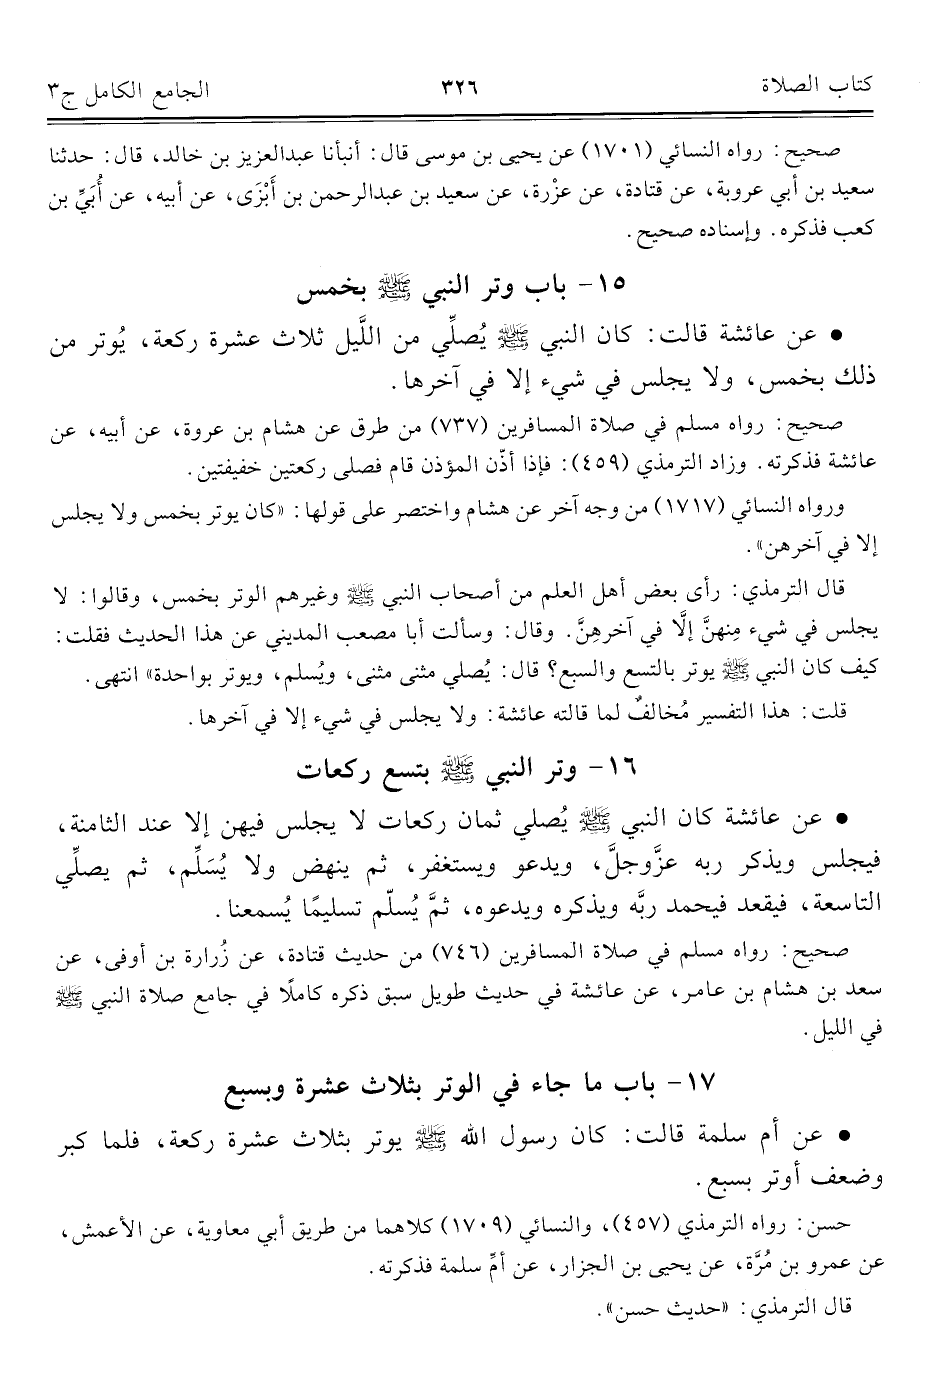 كتاب الصلاة ٣٢٦ الجامع الكامل ج٣
صحيح: رواه النسائي (١٧٠١) عن يحيى بن موسى قال: أنبأنا عبدالعزيز بن خالد، قال: حدثنا
سعيد بن أبي عروبة، عن قتادة، عن عزْرة، عن سعيد بن عبدالرحمن بن أَبْزَى، عن أبيه، عن أُبَيِّ بن
كعب فذكره. وإسناده صحيح.
١٥- باب وتر النبي ﷺ بخمس
• عن عائشة قالت: كان النبي ﷺ يُصلِّي من اللَّيل ثلاث عشرة ركعة، يُوتر من
ذلك بخمس، ولا يجلس في شيء إلا في آخرها.
صحيح: رواه مسلم في صلاة المسافرين (٧٣٧) من طرق عن هشام بن عروة، عن أبيه، عن
عائشة فذكرته. وزاد الترمذي (٤٥٩): فإذا أذّن المؤذن قام فصلى ركعتين خفيفتين.
ورواه النسائي (١٧١٧) من وجه آخر عن هشام واختصر على قولها: «كان يوتر بخمس ولا يجلس
إلا في آخرهن».
قال الترمذي: رأى بعض أهل العلم من أصحاب النبي ﷺ وغيرهم الوتر بخمس، وقالوا: لا
يجلس في شيء مِنهنَّ إلَّا في آخرهِنَّ. وقال: وسألت أبا مصعب المديني عن هذا الحديث فقلت:
كيف كان النبي ﷺ يوتر بالتسع والسبع؟ قال: يُصلي مثنى مثنى، ويُسلم، ويوتر بواحدة» انتهى.
قلت: هذا التفسير مُخالفٌ لما قالته عائشة: ولا يجلس في شيء إلا في آخرها.
١٦- وتر النبي ﷺ بتسع ركعات
• عن عائشة كان النبي ﷺ يُصلي ثمان ركعات لا يجلس فيهن إلا عند الثامنة،
فيجلس ويذكر ربه عزَّوجلَّ، ويدعو ويستغفر، ثم ينهض ولا يُسَلِّم، ثم يصلِّي
التاسعة، فيقعد فيحمد ربَّه ويذكره ويدعوه، ثمَّ يُسلّم تسليمًا يُسمعنا.
صحيح: رواه مسلم في صلاة المسافرين (٧٤٦) من حديث قتادة، عن زُرارة بن أوفى، عن
سعد بن هشام بن عامر، عن عائشة في حديث طويل سبق ذكره كاملًا في جامع صلاة النبي ﷺ
في الليل.
١٧- باب ما جاء في الوتر بثلاث عشرة وبسبع
• عن أم سلمة قالت: كان رسول الله ﷺ يوتر بثلاث عشرة ركعة، فلما كبر
وضعف أوتر بسبع.
حسن: رواه الترمذي (٤٥٧)، والنسائي (١٧٠٩) كلاهما من طريق أبي معاوية، عن الأعمش،
عن عمرو بن مُرَّة، عن يحيى بن الجزار، عن أمِّ سلمة فذكرته.
قال الترمذي: «حديث حسن».